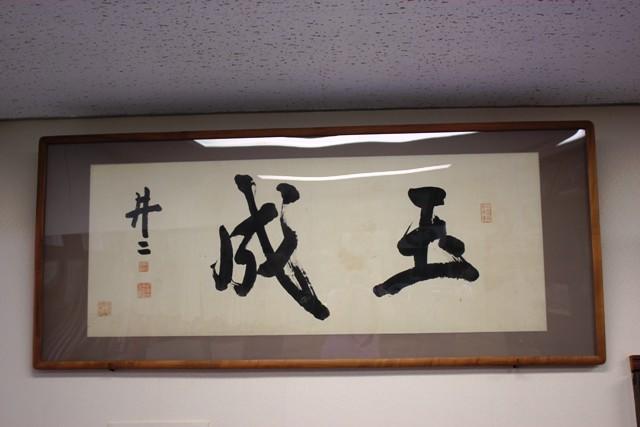 玉成
井二